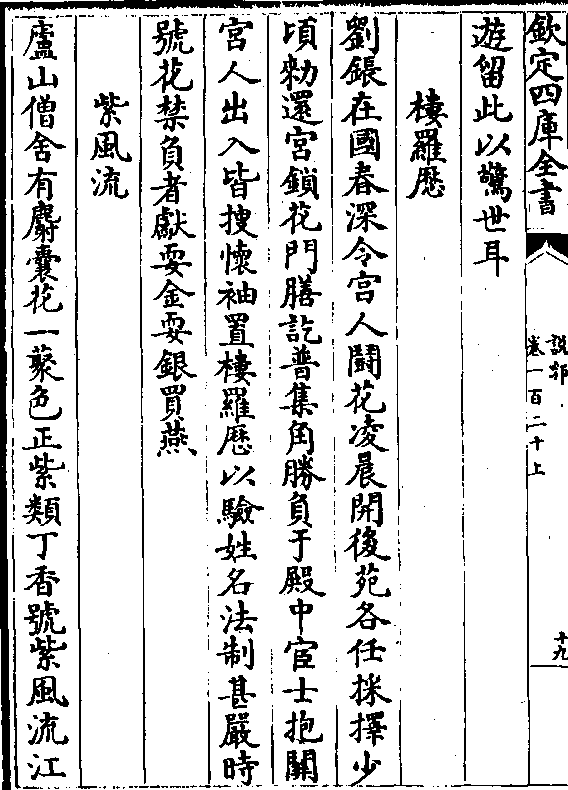 欽定四庫全書
說郛
卷一百二十上
十九
遊留此以驚世耳
棲羅厯
劉鋹在國春深令宫人鬬花凌晨開後苑各任採擇少
頃勅還宫鎖花門膳訖普集角勝負于殿中宦士抱關
宫人出入皆搜懷袖置棲羅厯以驗姓名法制甚嚴時
號花禁負者獻耍金耍銀買燕
紫風流
廬山僧舍有麝囊花一藂色正紫類丁香號紫風流江